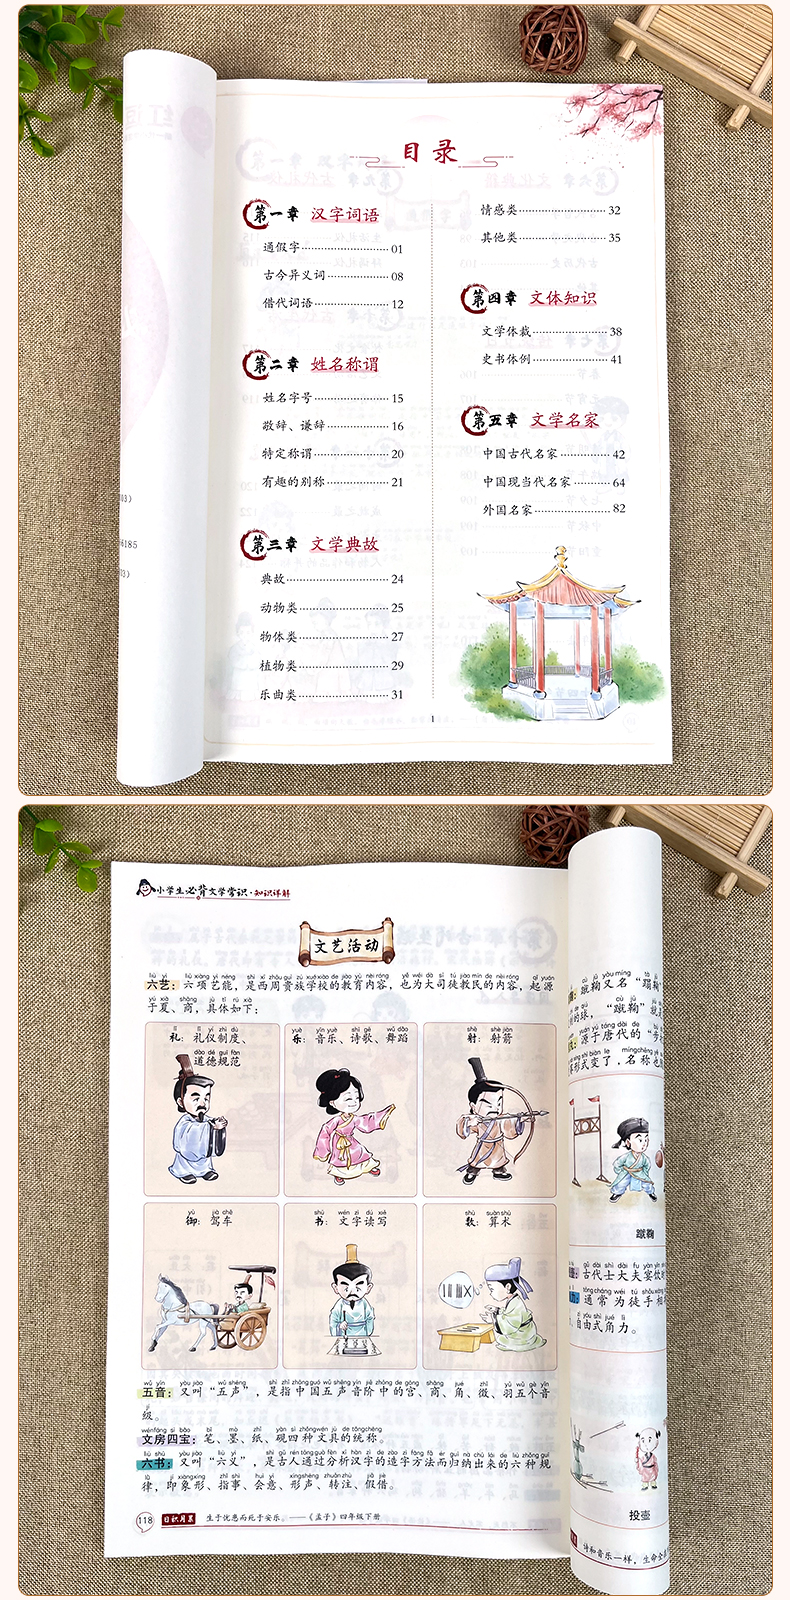 目录
第一章 汉字词语
通假字 01
古今异义词 08
借代词语 12
第二章 姓名称谓
姓名字号 15
敬辞、谦辞 16
特定称谓 20
有趣的别称 21
第三章 文学典故
典故 24
动物类 25
物体类 27
植物类 29
乐曲类 31
情感类 32
其他类 35
第四章 文体知识
文学体裁 38
史书体例 41
第五章 文学名家
中国古代名家 42
中国现当代名家 64
外国名家 82
1
小学生必背文学常识·知识详解
文艺活动
六艺：六项艺能，是西周贵族学校的教育内容，也为大司徒教民的内容，起源
于夏、商，具体如下：
礼：礼仪制度、
道德规范
乐：音乐、诗歌、舞蹈
射：射箭
御：驾车
书：文字读写
数：算术
五音：又叫“五声”，是指中国五声音阶中的宫、商、角、徵、羽五个音
级。
文房四宝：笔、墨、纸、砚四种文具的统称。
六书：又叫“六义”，是古人通过分析汉字的造字方法而归纳出来的六种规
律，即象形、指事、会意、形声、转注、假借。
118 日积月累 生于忧患而死于安乐。——《孟子》四年级下册
蹴鞠又名“蹋鞠”
的球，“蹴鞠”就是
源于唐代的“步打
形式变了，名称也
蹴鞠
古代士大夫宴饮时
通常为徒手相
、自由式角力。
投壶
诗和音乐一样，生命全在